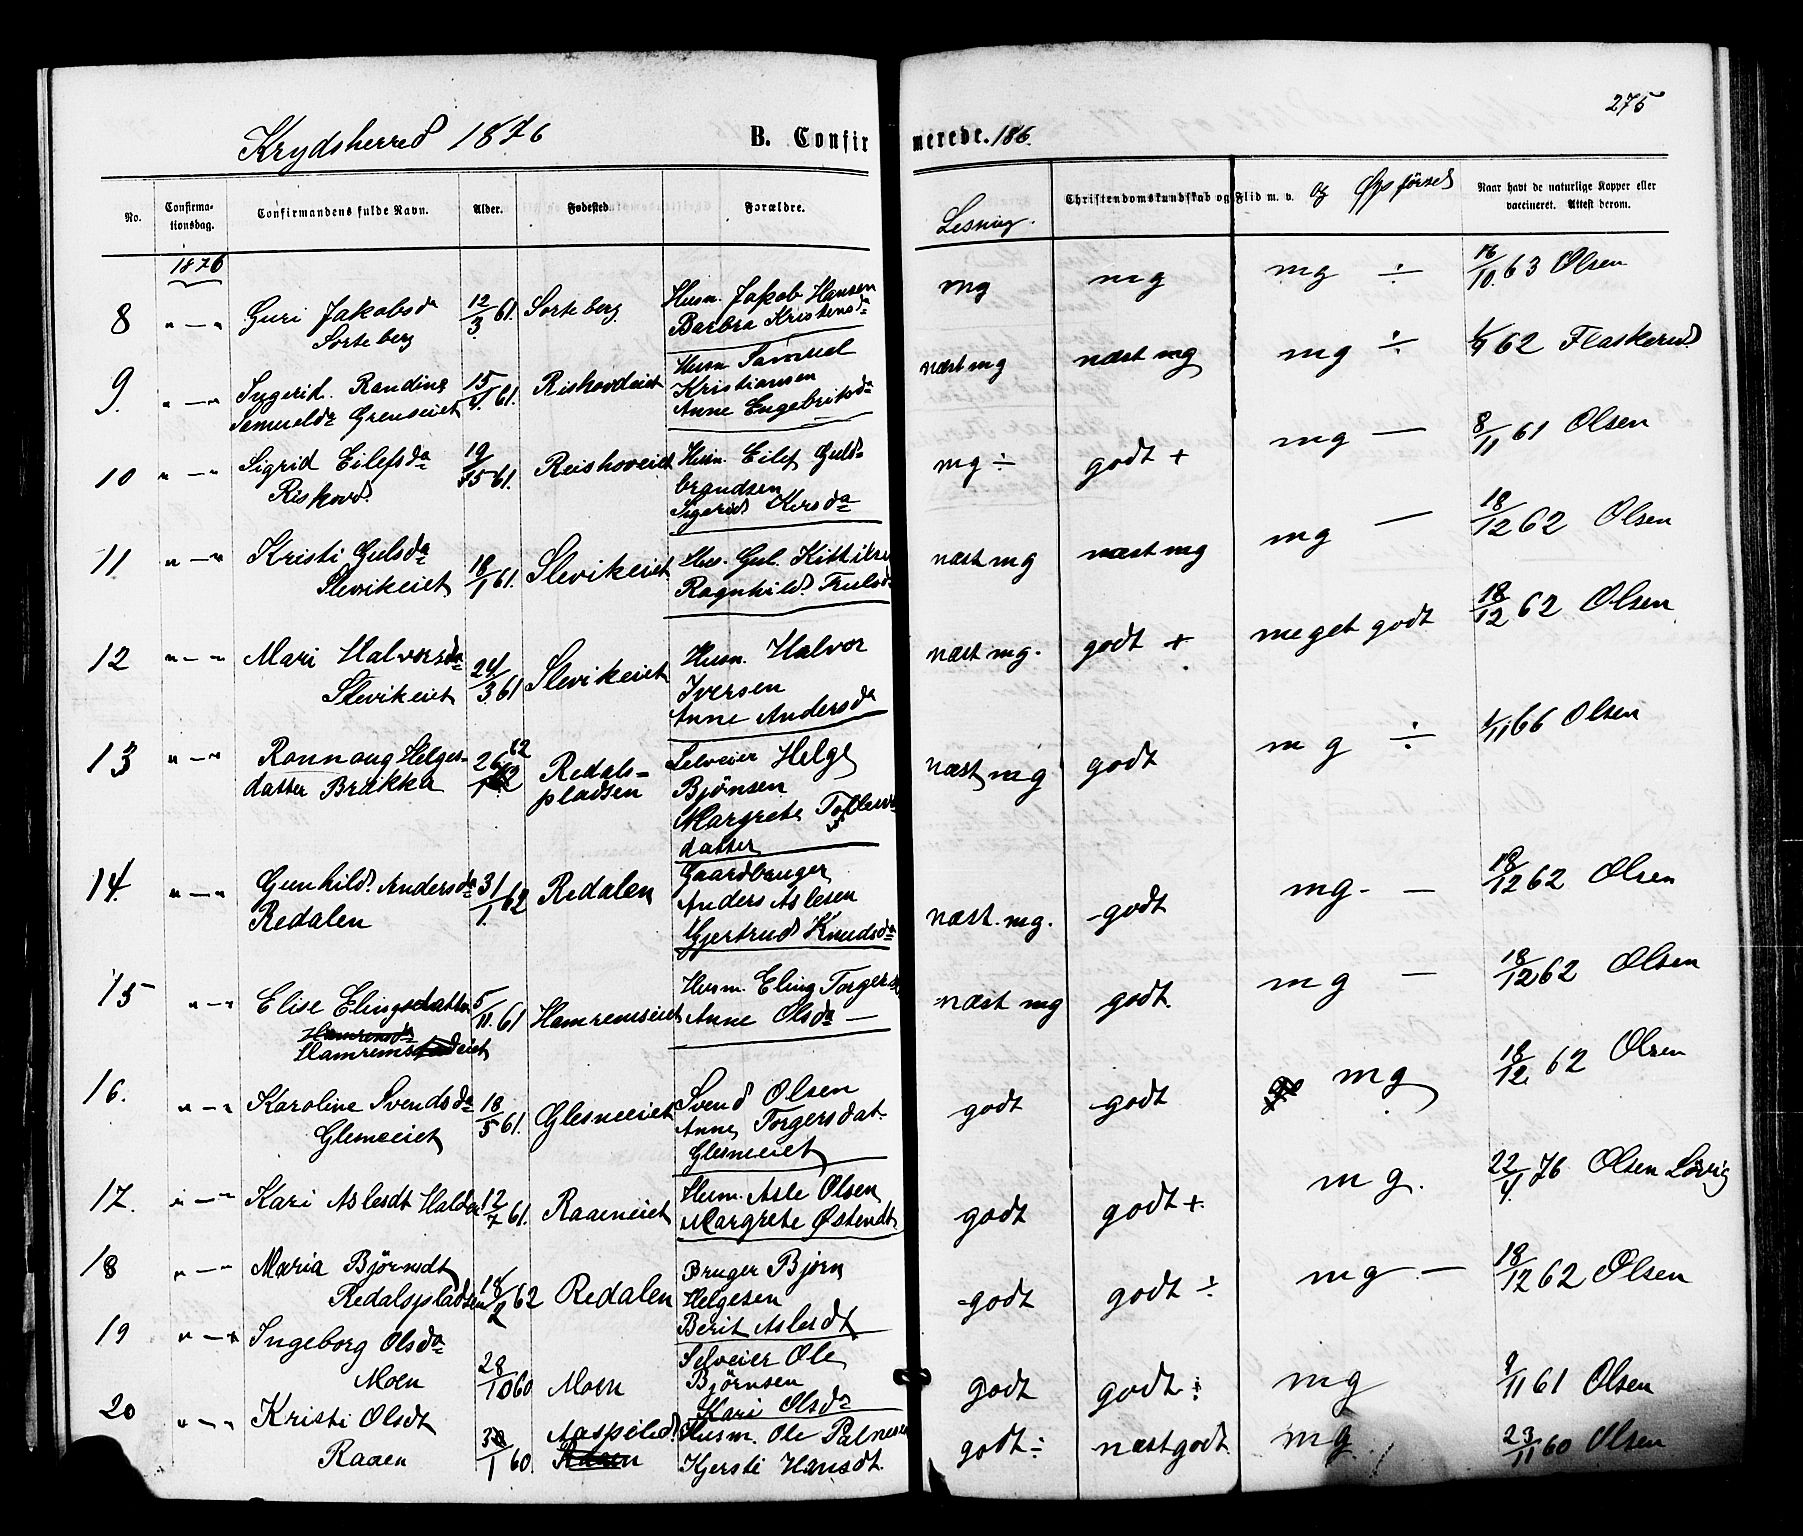 275
Krydsherred 1876 B. Confirmerede. 186
No. Confirmationsdag. Confirmandens fulde Navn. Alder. Fødested. Forældre. Lesning. Christendomskundskab og Flid m. v. og Opførsel Naar havt de naturlige Kopper eller vaccineret. Attest derom.
1876
8 " — " Guri Jakobsda 12/3 61. Sorteberg Husm. Jakob Hansen mg mg mg ÷ 16/10. 63 Olsen
Sorteberg Barbra Kristensda
9. " — " Sygerid Randine 15/4. 61. Rishovdeiet Husm Samuel næst mg næst mg mg ÷ 1/9 62 Flaskerud
Samuelda Grenseiet Kristiansen
Anne Engebritsda
10 " — " Sigrid Eilefsda 19/5 61. Reishoveiet Husm. Eilef Guld- mg ÷ godt + mg — 8/11 61 Olsen
Riskovd brandsen
Sigerid Iversda
11 " — " Kristi Gulsda 18/1 61. Slevikeiet Hus. Gul. Kittilsen næst mg næst mg mg — 18/12 62 Olsen
Slevikeiet Ragnhild Trulsda
12 " — " Mari Halvorsda 24/3 61 Slevikeiet Husm. Halvor næst mg. godt + meget godt 18/12 62 Olsen
Slevikeiet Iversen
Anne Andersda
13 " — " Rannaug Helges- 26/1 62 Redals- Selveier Helge næst mg godt mg ÷ 1/11 66 Olsen
datter Brakka pladsen Bjönsen
Margrete Tollevs
datter
14. " — " Gunhild Andersda 31/1. 62 Redalen Gaardbruger næst. mg. godt mg. — 18/12 62 Olsen
Redalen Anders Aslesen
Gjertrud Knudsda
15 " — " Elise Elingsdatter 5/11. 61 Hamremseiet Husm. Eling Torgersen næst mg godt mg — 18/12 62 Olsen
Hamremseiet Anne Olsda —
16. " — " Karoline Svendsda 18/5 61. Glesneeiet Svend Olsen godt godt mg 18/12. 62 Olsen
Glesneeiet Anne Torgersdat.
Glesneeiet
17. " — " Kari Aslesdt Halden 12/7 61. Raaeneiet Husm. Asle Olsen godt godt + mg. 22/4. 76 Olsen Lövig
Margrete Østendt
18 " — " Maria Björnsdt 18/2 62 Redalen Bruger Björn godt godt ÷ mg. — 18/12 62 Olsen
Redalspladsen Helgesen
Berit Aslesdt
19 " — " Ingeborg Olsda 28/10 60 Moen Selveier Ole godt godt ÷ mg 9/11 61 Olsen
Moen Björnsen
Kari Olsda
20 " — " Kristi Olsdt 30/1 60. Aaspelid Husm. Ole Palnesen godt ÷ næst godt. mg 23/11 60 Olsen
Raaen Kjersti Hansdt.